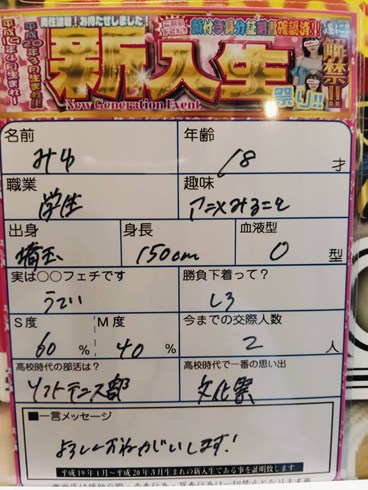 男性速報!お待たせしました!
新入生
祭り!!
New Generation Event
解禁!!
名前
みゆ
年齢
18才
職業
学生
趣味
アニメみること
出身
埼玉
身長
150cm
血液型
O型
実は○○フェチです
うでい
勝負下着って?
しろ
S度
60%
M度
40%
今までの交際人数
2人
高校時代の部活は?
ソフトテニス部
高校時代で一番の思い出
文化祭
■一言メッセージ
よろしくおねがいします!
平成19年4月〜平成20年3月生まれの新入生である事を証明致します